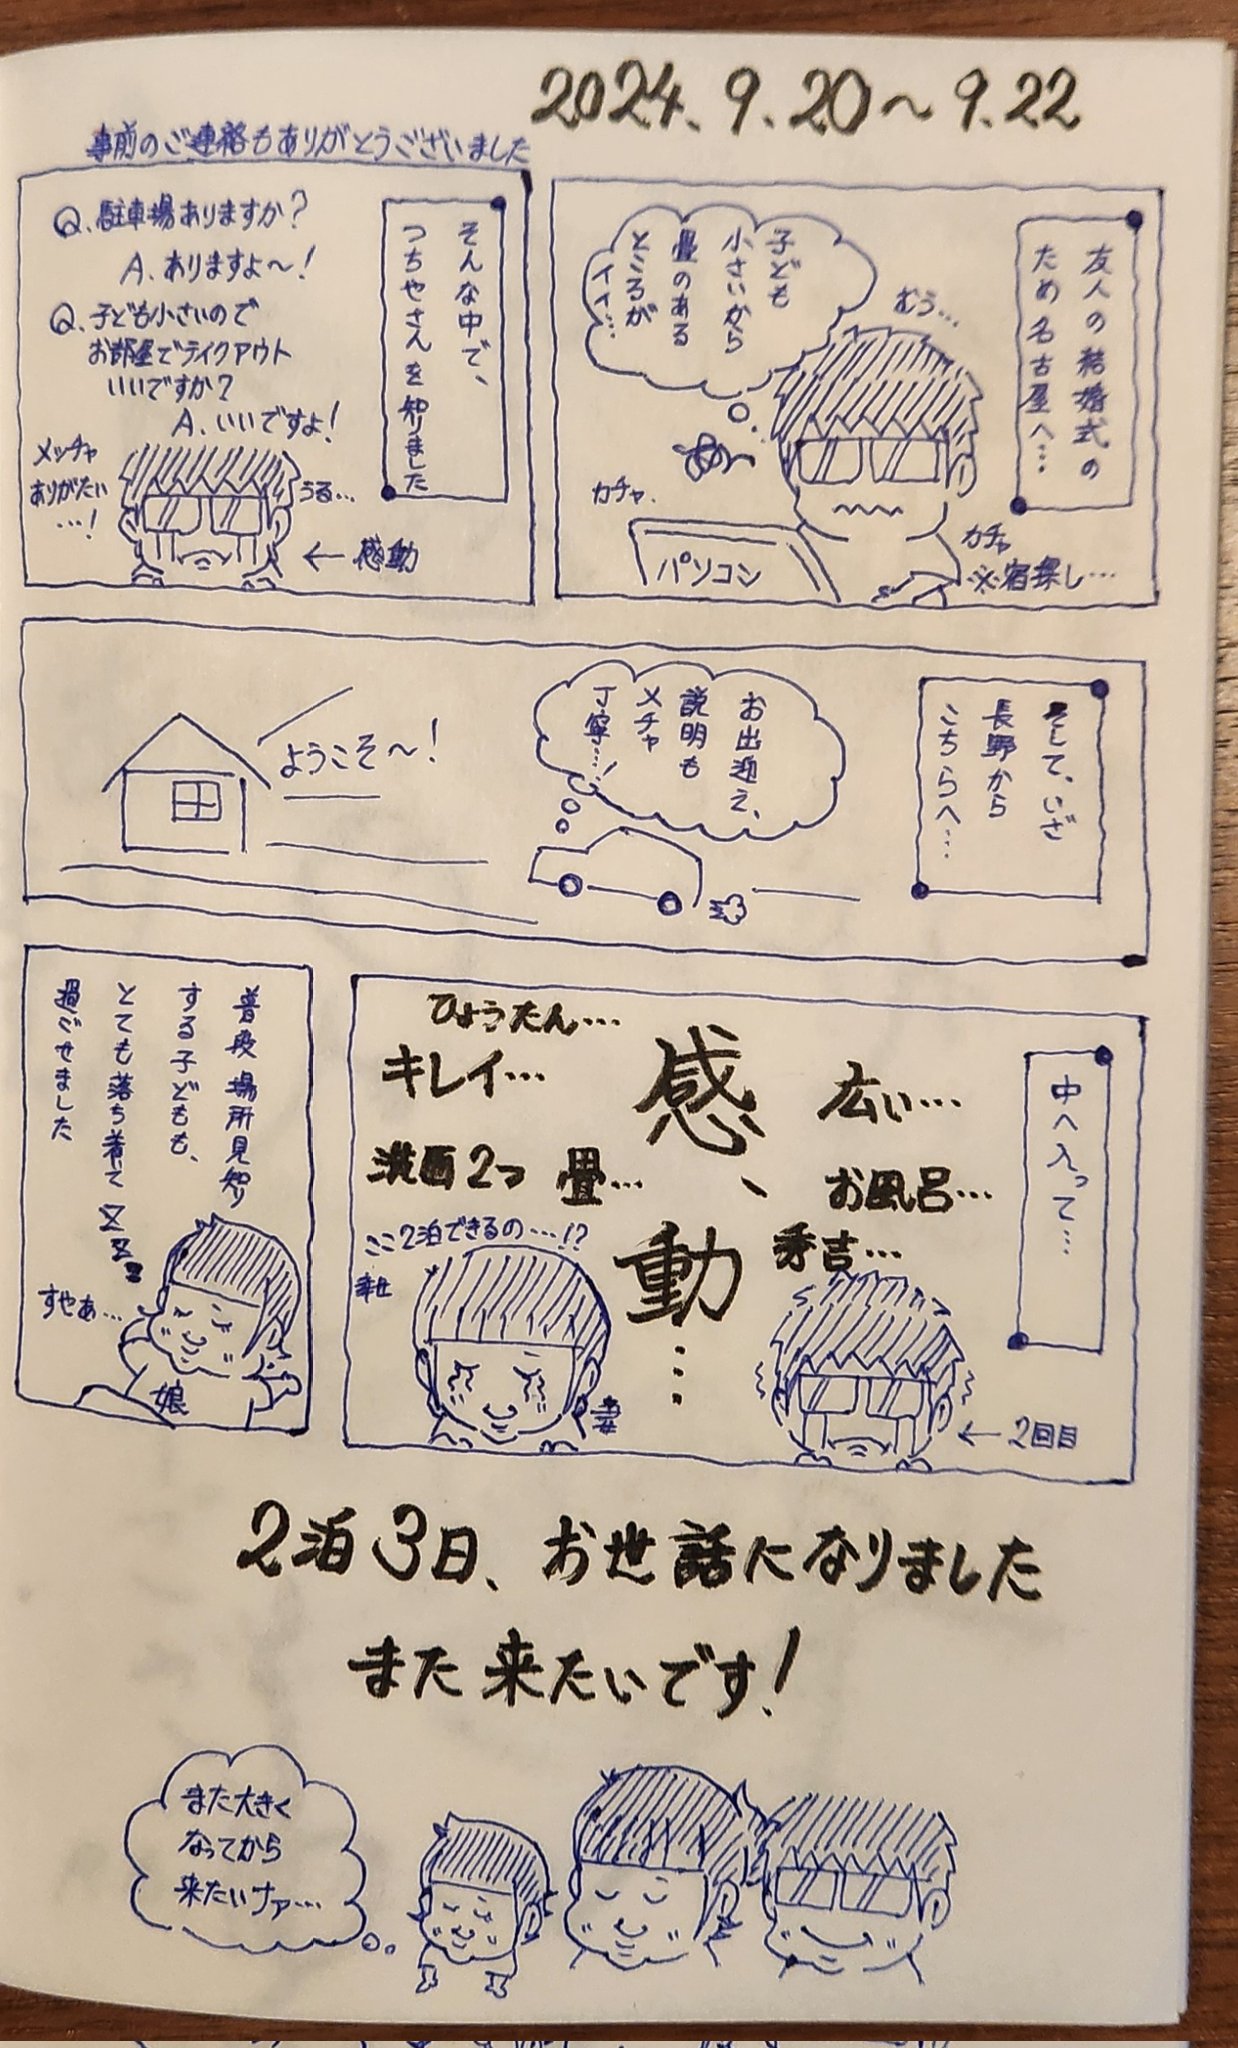 2024.9.20～9.22
事前のご連絡もありがとうございました
友人の結婚式の
ため名古屋へ…
むぅ…
子ども
小さいから
畳のある
ところが
イイ…
カチャ
カチャ
パソコン
※宿探し…
そんな中で、
つちやさんを知りました
Q.駐車場ありますか?
A.ありますよ～!
Q.子ども小さいので
お部屋でテイクアウト
いいですか?
A.いいですよ!
メッチャ
ありがたい
…!
うる…
←感動
そして、いざ
長野から
こちらへ…
お出迎え、
説明も
メチャ
丁寧…!
ようこそ～!
中へ入って…
広い…
お風呂…
秀吉…
感、動…
ひょうたん…
キレイ…
洗面2つ
畳…
ここ2泊できるの…!?
幸せ
妻
←2回目
普段場所見知り
する子どもも、
とても落ち着いて
過ごせました
ZZZ
すやぁ…
娘
2泊3日、お世話になりました
また来たいです!
また大きく
なってから
来たいナァ…